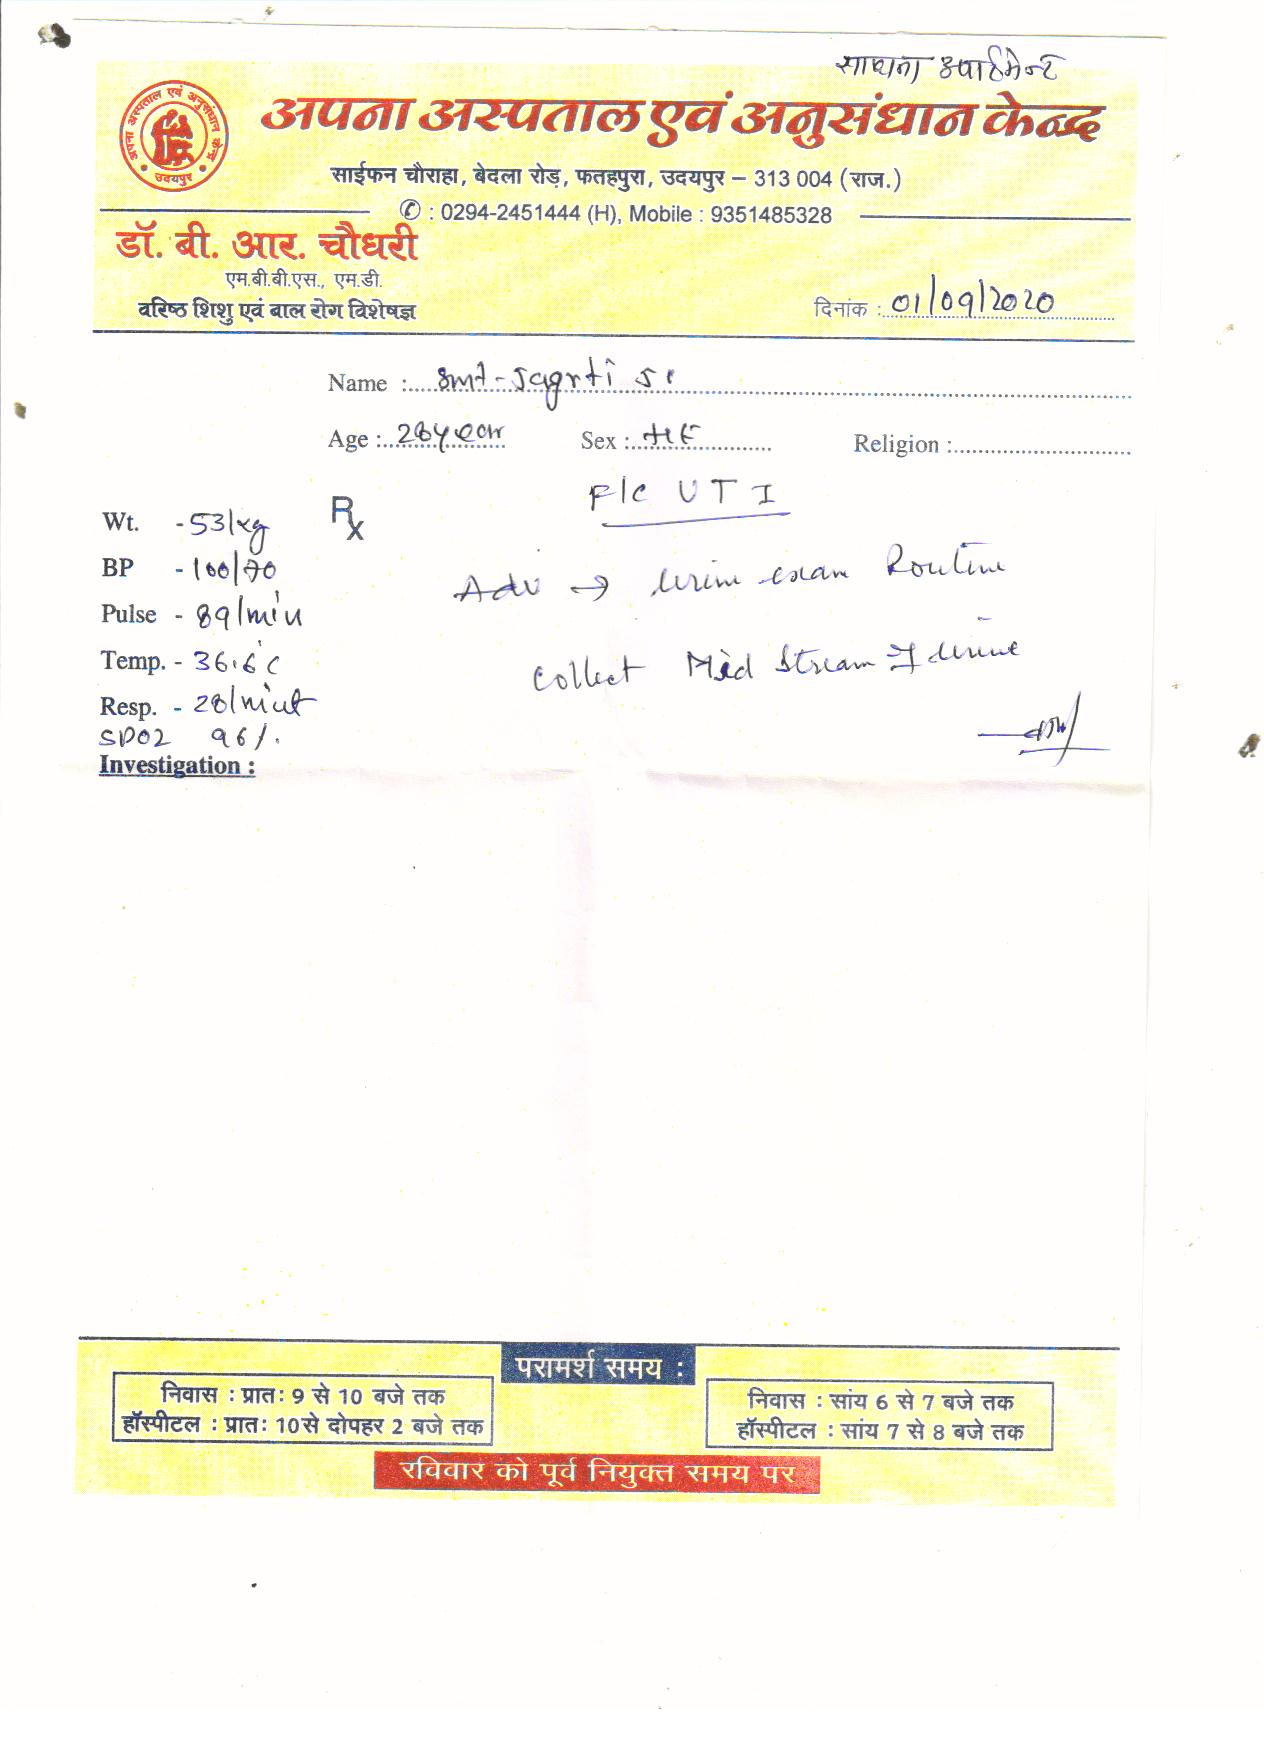 साधना अपार्टमेन्ट
अपना अस्पताल एवं अनुसंधान केन्द्र
अपना अस्पताल एवं अनुसंधान केन्द्र
उदयपुर
साईफन चौराहा, बेदला रोड़, फतहपुरा, उदयपुर – 313 004 (राज.)
✆ : 0294-2451444 (H), Mobile : 9351485328
डॉ. बी. आर. चौधरी
एम.बी.बी.एस., एम.डी.
वरिष्ठ शिशु एवं बाल रोग विशेषज्ञ
दिनांक : 01/09/2020
Name : Smt-Jagrti
Age : 28 year Sex : Religion :
F/C UTI
Wt. - 53/kg Rx
BP - 100/70
Adv → Urine exam Routine
Pulse - 89/min
Temp. - 36.6 C
Collect Mid Stream of urine
Resp. - 28/minut
SPO2 96%
Investigation :
परामर्श समय :
निवास : प्रातः 9 से 10 बजे तक
हॉस्पीटल : प्रातः 10 से दोपहर 2 बजे तक
निवास : सांय 6 से 7 बजे तक
हॉस्पीटल : सांय 7 से 8 बजे तक
रविवार को पूर्व नियुक्त समय पर